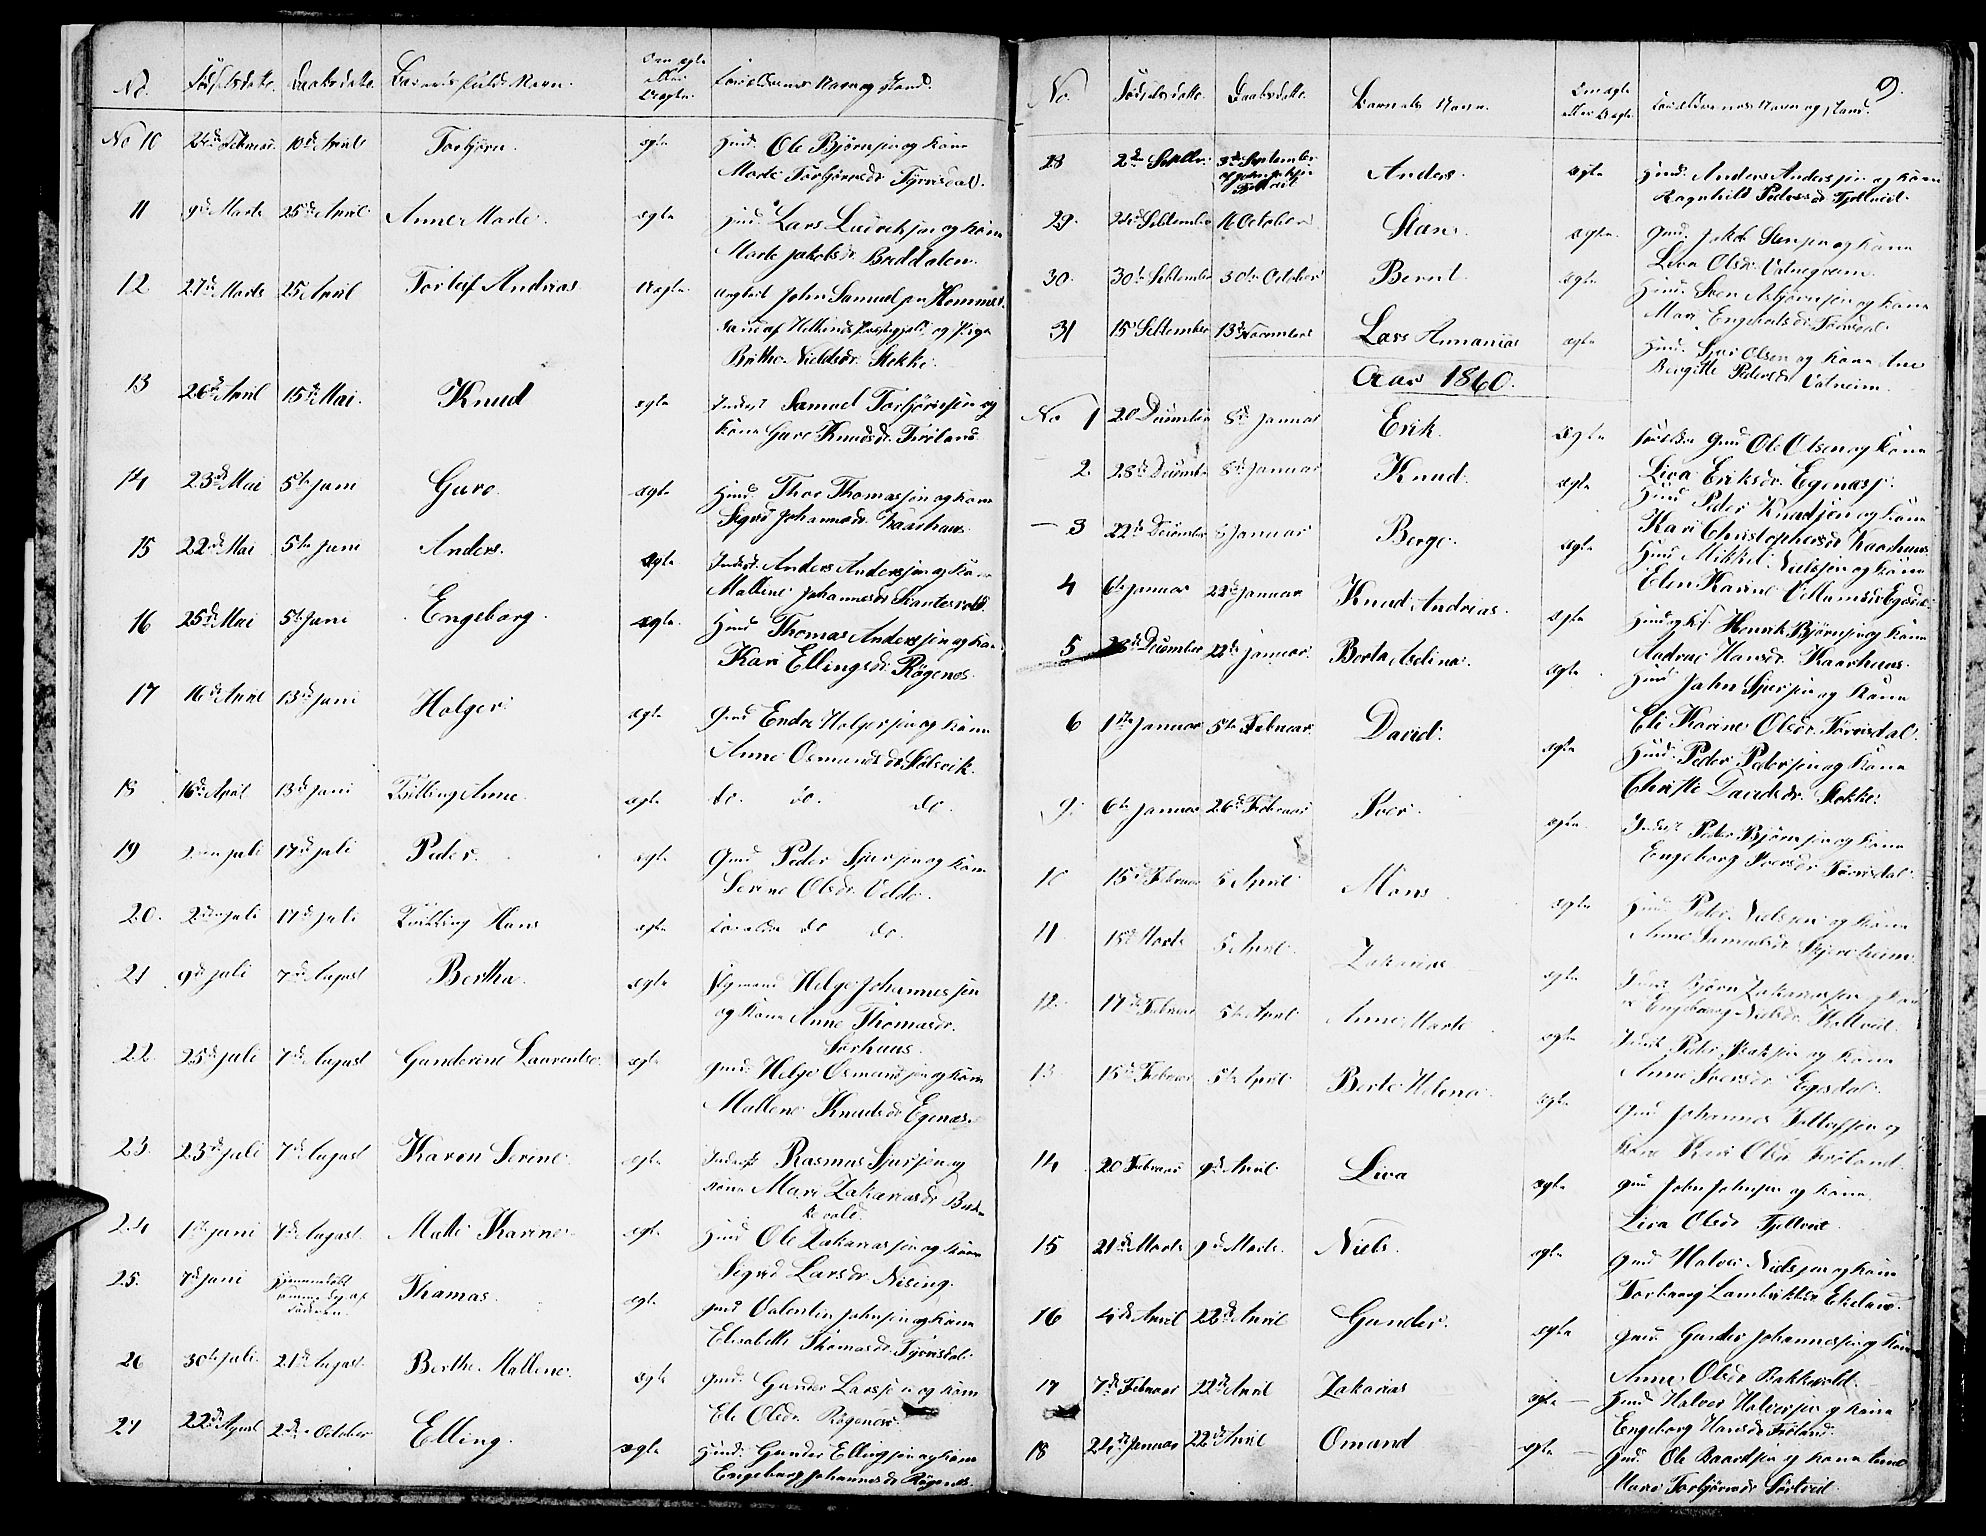 No. Födselsdatto. Daabsdatto. Barnets fulde Navn. Om ægte eller Uægte. Forældrenes Navn og Stand.
No 10 24de Februar. 10de April Torbjörn. ægte Huusm. Ole Björnsen og Kone
Marte Torbjörnsdr Tyvisdal.
11 9de Marts 25de April Anne Marte. ægte Huusm. Lars Ludviksen og Kone
Marte Jakobsdr. Breddalen.
12 27de Marts 25 April Torlaf Andrias Uægte. Ungkarl John Samuelsen Hommer-
sand af Helleland Præstegjeld og Pige
Berthe Nieldsdr. Stokke.
13 20de April 15de Mai. Knud ægte Inderst Samuel Torbjörnsen og
Kone Guro Knudsdr. Tveiland.
14 23de Mai 5te juni Guro. ægte Huusm. Thor Thomassen og Kone
Sigrid Johannesdr. Kaarhuus.
15 22de Mai 5te juni Anders. ægte Inderst. Anders Andersen og Kone
Mallene Johannesdr
16 25de Mai 5te juni Engeborg. ægte. Huusm. Thomas Andersen og Kone
Kari Ellingsdr. Rögenes.
17 16de 13de juni Holger ægte Gmd Endre Holgersen og Kone
Anne Osmundsdr.
18 16de April 13de juni Tvilling Anne. ægte do. do. do.
19 2den juli 17de juli Peder. ægte Gmd Peder Sjursen og Kone
Serine Olsdr. Velde.
20. 2den juli 17de juli Tvilling Hans ægte Forældre do do.
21 9de juli 7de August Bertha. ægte Helge Johannessen
og Kone Anne Thomasdr.
Sörhuus.
22. 25de juli 7de August Gunderine Laurentse. ægte Gmd. Helge Osmundsen og Kone
Mallene Knudsdr Egenæs.
23. 23de juli 7de August Karen Serine. ægte Inderst Rasmus Sjursen og
Kone Mari Zakariasdr Bak-
kevold.
24 1ste juni 7de August. Malli Karine. ægte Huusm Ole Zakariassen og Kone
Sigrid Larsdr. Nising.
25. 7de juni Hjemmedöbt
samme Dag af
Faderen. Thomas. ægte Gmd Valentin Johnsen og Kone
Elisabeth Thomasdr. Tyvisdal.
26 30te juli. 21de August. Berthe Mallene. ægte Gmd. Gunder Larssen og Kone
Eli Olsdr. Rögenes.
27 22de August 2den October Elling. ægte Huusm. Gunder Ellingsen og Kone
Engeborg Johannesdr Rögenes.
9.
No. Födselsdatto. Daabsdatto. Barnets Navn. Om ægte eller Uægte. Forældrenes Navn og Stand.
28 2den Septbr. 3de September Anders. ægte Huusm. Anders Andersen og Kone
Ragnhild Pedersdr Fjelleid.
29. 24de September 16 October Stan. ægte. Gmd. Jakob Stensen og Kone
Liva Olsdr. Vatnegrem.
30. 30te September 30te October Bernt. ægte Huusm. Sven Asbjörnsen og Kone
Mari Engebretsdr.
31 15 September 13de November Lars Annanias ægte Huusm. Sjur Olsen og Kone Ane
Bergitte Pedersdr Vatneim.
Aar 1860.
No 1 20 December 8de januar Erik. ægte Forældre Gmd Ole Olsen og Kone
Liva Eriksdr. Egenæs.
2. 28de December 8de januar Knud. ægte Huusm Peder Knudsen og Kone
Kari Christophersdr Kaarhuus
3 22de December 8 januar Berge. ægte Huusm Mikkel Nielssen og Kone
Elen Karine Villumsdr Egesdal.
4 6te januar 22de januar Knud Andreas. ægte Henrik Björnsen og Kone
Andrine Hansdr. Kaarhuus.
5 28de December 22de januar. Berta Aselina. ægte Huusm John Sjursen og Kone
Eli Karine Olsdr. Tyvisdal.
6 1ste januar 5te Februar. David. ægte Huusm. Peder Pedersen og Kone
Christi Davidsdr. Stokke.
9. 6te januar 26de Februar Iver. ægte Inderst Peder Björnsen og Kone
Engeborg Iversdr Tyvisdal.
10 15de Februar 5 April Mons. ægte Huusm. Peder Nielssen og Kone
Anne Samuelsdr Skjereheim.
11 15de Marts 5 April. Zakarias ægte Inderst Björn Zakariassen og Kone
Engeborg Nielsdr.
12. 17de Februar 5te April Anne Marte. ægte Inderst Peder Isaksen og Kone
Anne Iversdr Egesdal.
13. 15de Februar 5te April Berte Helena. ægte Gmd Johannes Tollefsen og
Kone Kari Olsdr Tveiland.
14 20 Februar 9de April. Liva ægte Gmd John Johnsen og Kone
Liva Olsdr Fjelleid.
15 21de Marts 9de Niels. ægte Gmd Halvor Nielssen og Kone
Torbaarg Lambriksdr Ekeland.
16 4de April 22de April Gunder. ægte Gmd. Gunder Johannessen og Kone
Anne Olsdr. Bakkevold.
17 7de Februar 22de April Zakarias ægte Huusm Halvor Halvorsen og Kone
Engeborg Hansdr Tveiland.
18 24de januar 22de April Omund ægte Gmd. Ole Baardsen og Kone Anne
Marie Torbjörnsdr